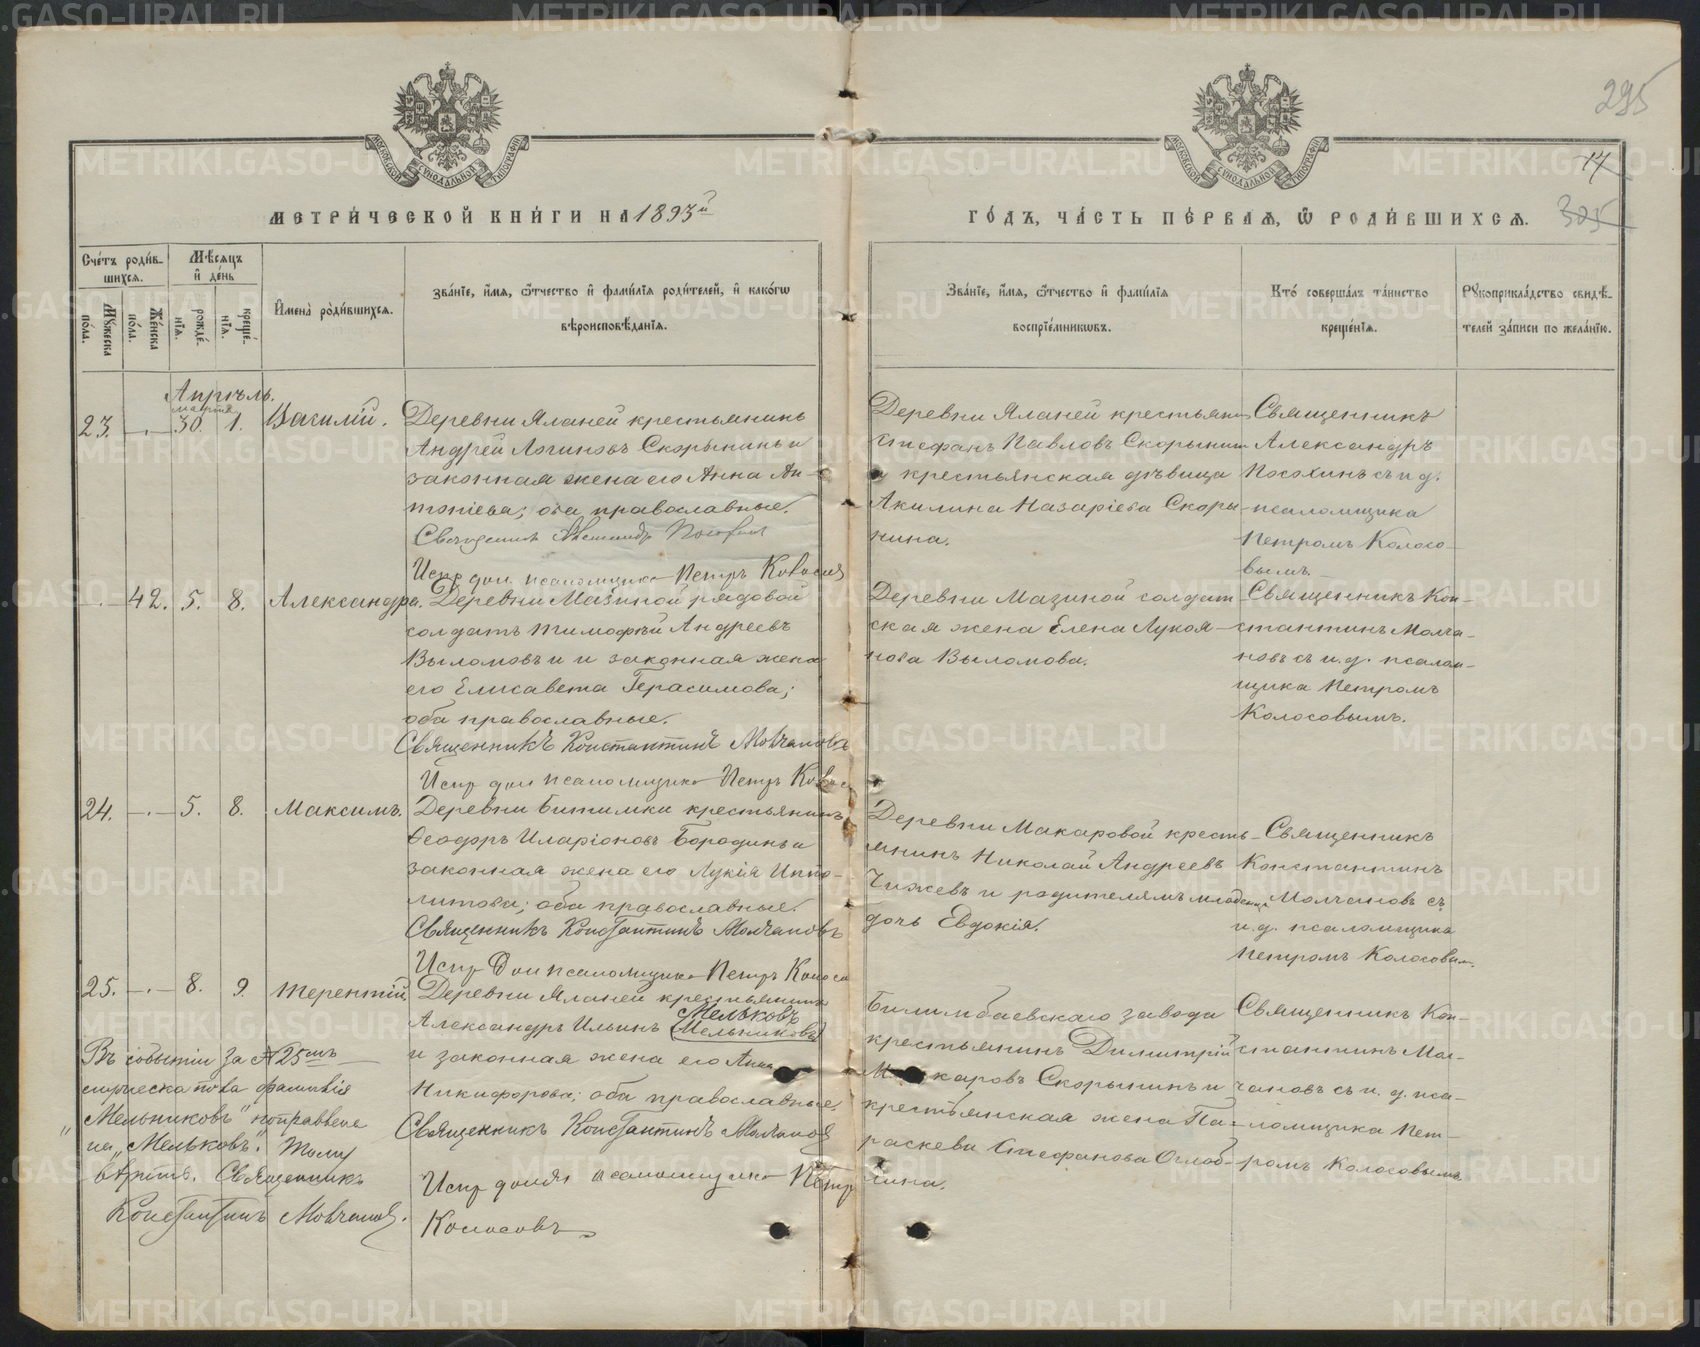 295
17
305
МОСКОВСКОЙ СѴНОДАЛЬНОЙ ТИПОГРАФІИ
МОСКОВСКОЙ СѴНОДАЛЬНОЙ ТИПОГРАФІИ
МЕТРИ́ЧЕСКОЙ КНИ́ГИ НА 1893й
ГО́ДЪ, ЧА́СТЬ ПЕ́РВАѦ, Ѡ҆ РОДИ́ВШИХСѦ.
Сче́тъ роди́в-
шихсѧ.
Мꙋ́жеска по́ла.
Же́нска по́ла.
Мѣ́сѧцъ
и҆ де́нь
рожде́-нїѧ.
креще́-нїѧ.
И҆мена̀ роди́вшихсѧ.
Зва́нїе, и҆́мѧ, ѻ҆́тчество и҆ фами́лїѧ роди́телей, и҆ како́гѡ
вѣроисповѣ́данїѧ.
Зва́нїе, и҆́мѧ, ѻ҆́тчество и҆ фами́лїѧ
воспрїе́мникѡвъ.
Кто̀ соверша́лъ та́инство
креще́нїѧ.
Рꙋкоприкла́дство свидѣ́-
телей за́писи по жела́нїю.
Апрѣль.
марта
23. -.- 30. 1. Василій.
Деревни Яланей крестьянинъ
Андрей Логиновъ Скорынинъ и
законная жена его Анна Ан-
тоніева; оба православные.
Священникъ Александръ Посохинъ
Испр дол псаломщика Петръ Колосов
Деревни Яланей крестьянин
Стефанъ Павловъ Скорынин
и крестьянская дѣвица
Акилина Назаріева Скоры-
нина.
Священникъ
Александръ
Посохинъ съ и д.
псаломщика
Петромъ Колосо-
вымъ.
-.- 42. 5. 8. Александра.
Деревни Мазиной рядовой
солдатъ Тимофей Андреевъ
Выломовъ и и законная жена
его Елисавета Герасимова;
оба православные.
Священникъ Константинъ Молчановъ
Испр дол псаломщика Петръ Колос
Деревни Мазиной солдат-
ская жена Елена Лукоя-
нова Выломова.
Священникъ Кон-
стантинъ Молча-
новъ съ и. д. псалом-
щика Петромъ
Колосовымъ.
24. -.- 5. 8. Максимъ.
Деревни Битимки крестьянинъ
Ѳеодоръ Иларіоновъ Бородинъ и
законная жена его Лукія Иппо-
литова; оба православные.
Священникъ Константинъ Молчановъ
Испр Дол псаломщика Петръ Колосо
Деревни Макаровой кресть-
янинъ Николай Андреевъ
Чижевъ и родителямъ младенца
дочь Евдокія.
Священникъ
Константинъ
Молчановъ съ
и. д. псаломщика
Петромъ Колосовым.
25. -.- 8. 9. Терентій.
Деревни Яланей крестьянинъ
Мельковъ
Александръ Ильинъ (Мельниковъ)
и законная жена его Анна
Никифорова; оба православные.
Священникъ Константинъ Молчановъ
Испр долж псаломщика Петръ
Колосовъ
Билимбаевскаго завода
крестьянинъ Димитрій
Макаровъ Скорынинъ и
крестьянская жена Па-
раскева Стефанова Оглоб-
лина.
Священникъ Кон-
стантинъ Мол-
чановъ съ и. д. пса-
ломщика Пет-
ромъ Колосовымъ
Въ событіи за № 25мъ
фамилія
„Мельниковъ" поправлена
на „Мельковъ". Тому
вѣрить. Священникъ
Константинъ Молчановъ.
METRIKI.GASO-URAL.RU